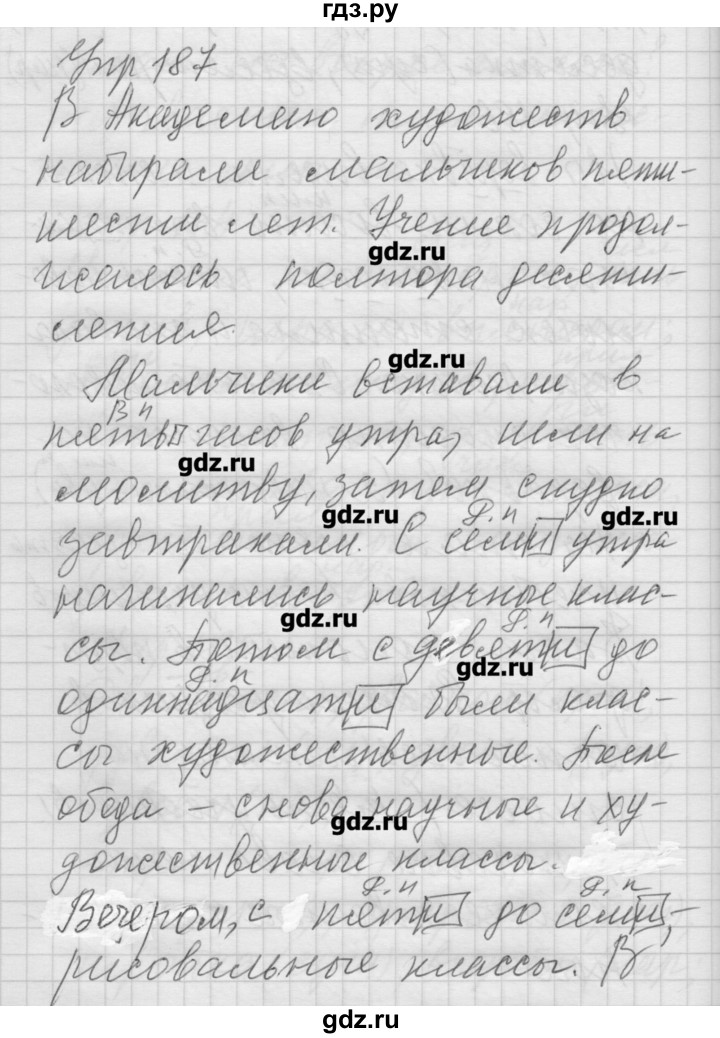 гдз.ру
Упр 187
В Академию художеств
набирали мальчиков пяти-
шести лет. Учение продол-
gdz.ru
жалось полтора десяти-
летия.
gdz.ru
Мальчики вставали в
В п
пять часов утра, шли на
gdz.ru
молитву, затем скудно
gdz.ru
Р. п
gdz.ru
завтракали. С семи утра
начинались научные клас-
gdz.ru
Р. п
сы. Потом с девяти до
gdz.ru
Р. п
одиннадцати были клас-
сы художественные. После
обеда – снова научные и ху-
gdz.ru
дожественные классы.
Р. п Р. п
Вечером, с пяти до семи, –
рисовальные классы. В
gdz.ru